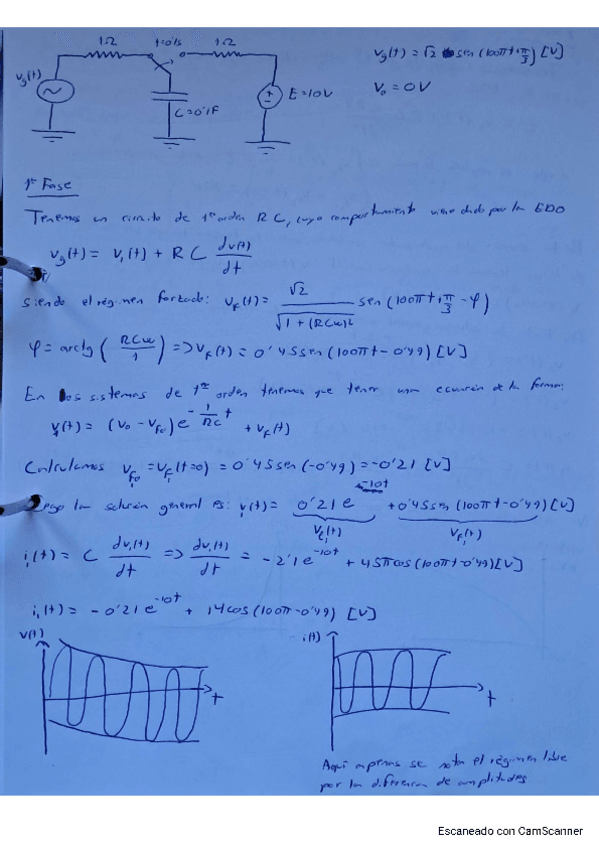 1Ω t=0's 1Ω
vg(t) = √2 sen (100πt+π/3) [V]
vg(t)
C=0'1F
E=10V
V₀ = 0V
1ª Fase
Tenemos un circuito de 1er orden RC, cuyo comportamiento viene dado por la EDO
vg(t) = v₁(t) + RC dv(t)/dt
siendo el régimen forzado: vF(t) = √2/√(1+(RCω)²) sen (100πt+π/3-φ)
φ = arctg (RCω/1) => vF(t) = 0'45 sen (100πt-0'49) [V]
En los sistemas de 1er orden tenemos que tener una ecuación de la forma:
v₁(t) = (V₀ - VF₀) e^(-1/RC t) + vF(t)
Calculamos VF₀ = VF(t=0) = 0'45 sen (-0'49) = -0'21 [V]
Luego la solución general es: v₁(t) = 0'21 e^(-10t) + 0'45 sen (100πt-0'49) [V]
vF₁(t)
i₁(t) = C dv₁(t)/dt => dv₁(t)/dt = -2'1 e^(-10t) + 45π cos (100πt-0'49) [V]
i₁(t) = -0'21 e^(-10t) + 14 cos (100π-0'49) [V]
v(t) i(t)
t t
Aquí apenas se nota el régimen libre
por la diferencia de amplitudes
Escaneado con CamScanner